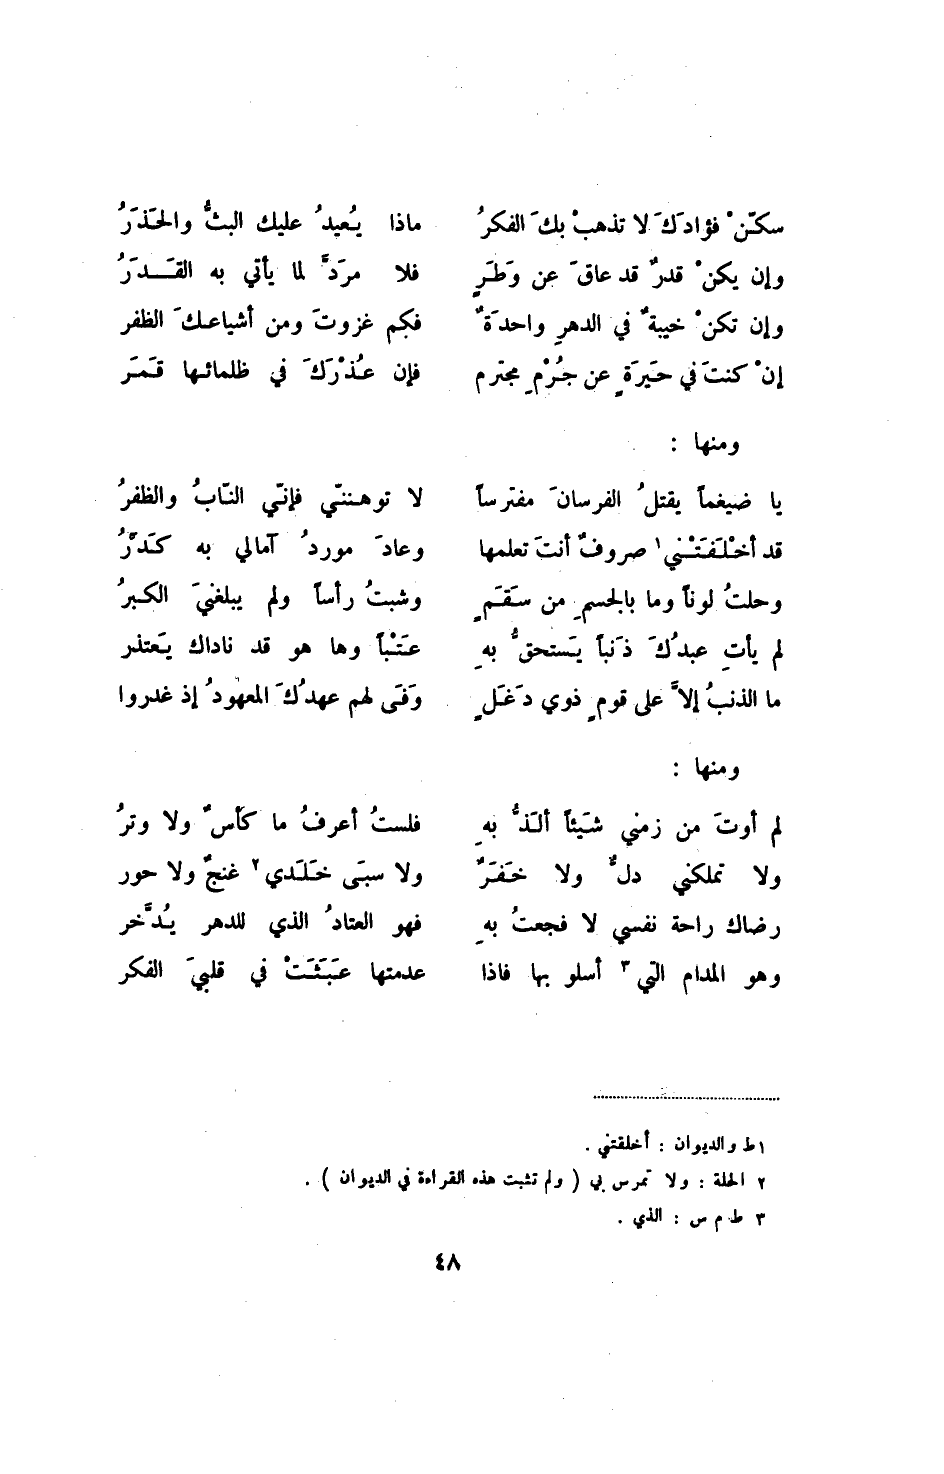 سكّنْ فؤادَكَ لا تذهبْ بكَ الفكرُ ماذا يُعيدُ عليك البثُّ والحَذَرُ
وإن يكنْ قدرٌ قد عاقَ عن وَطَرٍ فلا مرَدَّ لما يأتي به القَدَرُ
وإن تكنْ خيبةٌ في الدهرِ واحدَةٌ فكم غزوتَ ومن أشياعكَ الظفر
إنْ كنتَ في حَيرَةٍ عن جُرْمِ مجترم فإن عُذْرَكَ في ظلمائها قَمَر
ومنها :
يا ضيغماً يقتلُ الفرسانَ مفترساً لا توهننّي فإنّي النّابُ والظفرُ
قد أخْلَفَتْني١ صروفٌ أنتَ تعلمها وعادَ موردُ آمالي به كَدَرُ
وحلتُ لوناً وما بالجسمِ من سَقَمٍ وشبتُ رأساً ولم يبلغنيَ الكبرُ
لم يأتِ عبدُكَ ذَنباً يَستحقُّ بهِ عَتْباً وها هو قد ناداك يَعتذر
ما الذنبُ إلاَّ على قومٍ ذوي دَغَلٍ وَفَى لهم عهدُكَ المعهودُ إذ غدروا
ومنها :
لم أوتَ من زمني شَيئاً ألَذُّ بهِ فلستُ أعرفُ ما كَأسٌ ولا وترُ
ولا تملكني دلٌّ ولا خَفَرٌ ولا سبَى خَلَدي٢ غنجٌ ولا حور
رضاك راحة نفسي لا فجعتُ بهِ فهو العتادُ الذي للدهر يُدَّخر
وهو المدام التي٣ أسلو بها فاذا عدمتها عَبَثَتْ في قلبيَ الفكر
١ ط والديوان : أخلقتني .
٢ الحلة : ولا تمرس بي ( ولم تثبت هذه القراءة في الديوان ) .
٣ ط م س : الذي .
٤٨